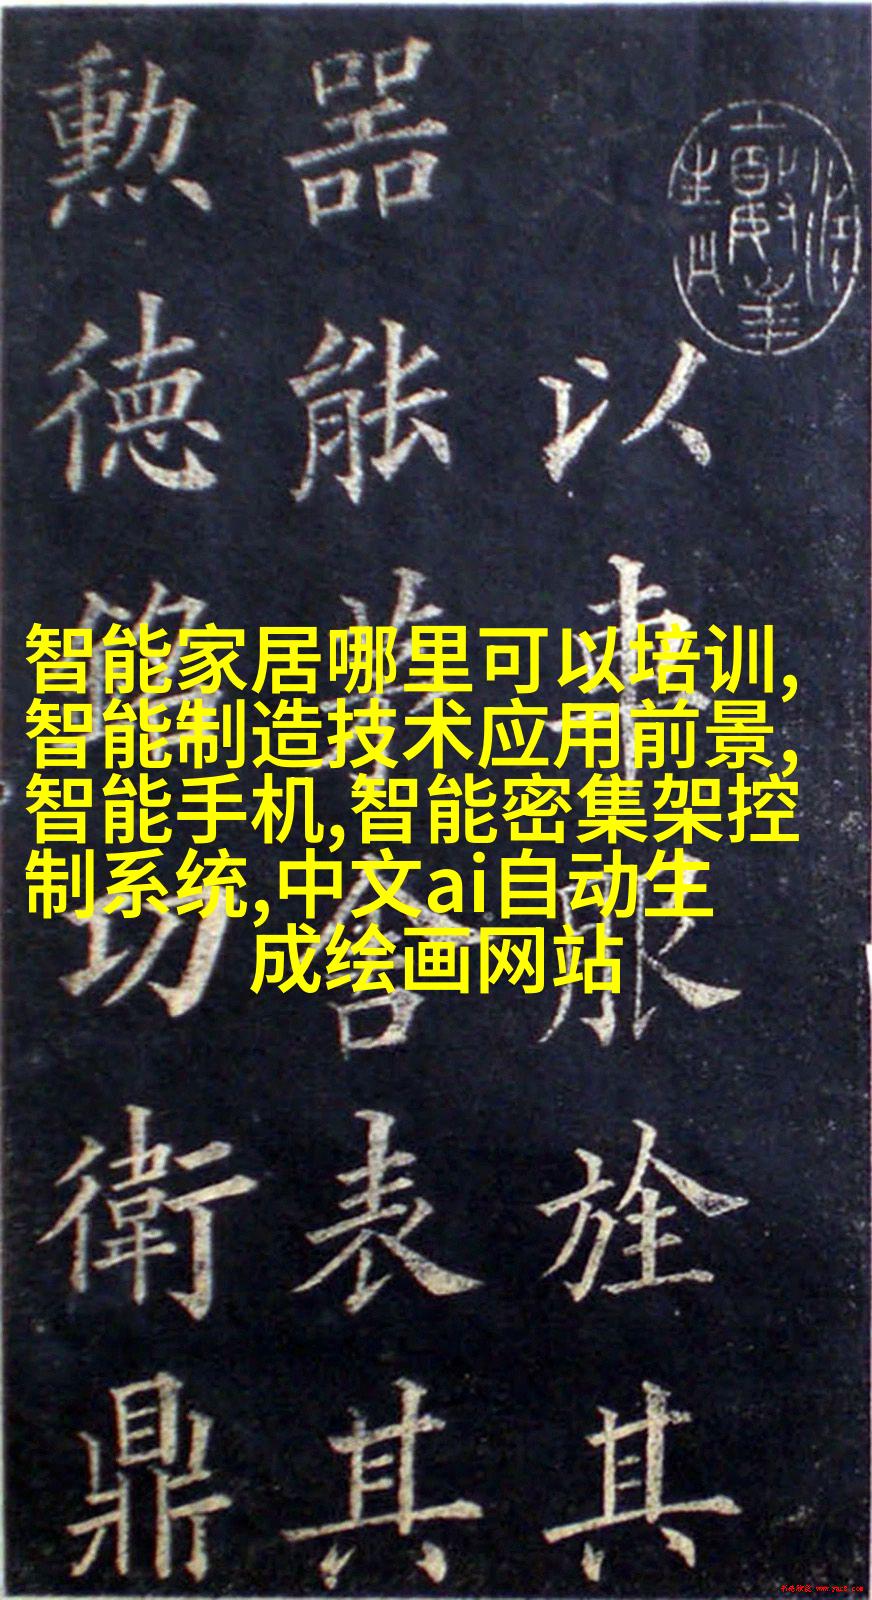 以車服旌其
器能表其
勲德功衛鼎
智能家居哪里可以培训,
智能制造技术应用前景,
智能手机,智能密集架控
制系统,中文ai自动生
成绘画网站
书法欣赏 www.yac8.com